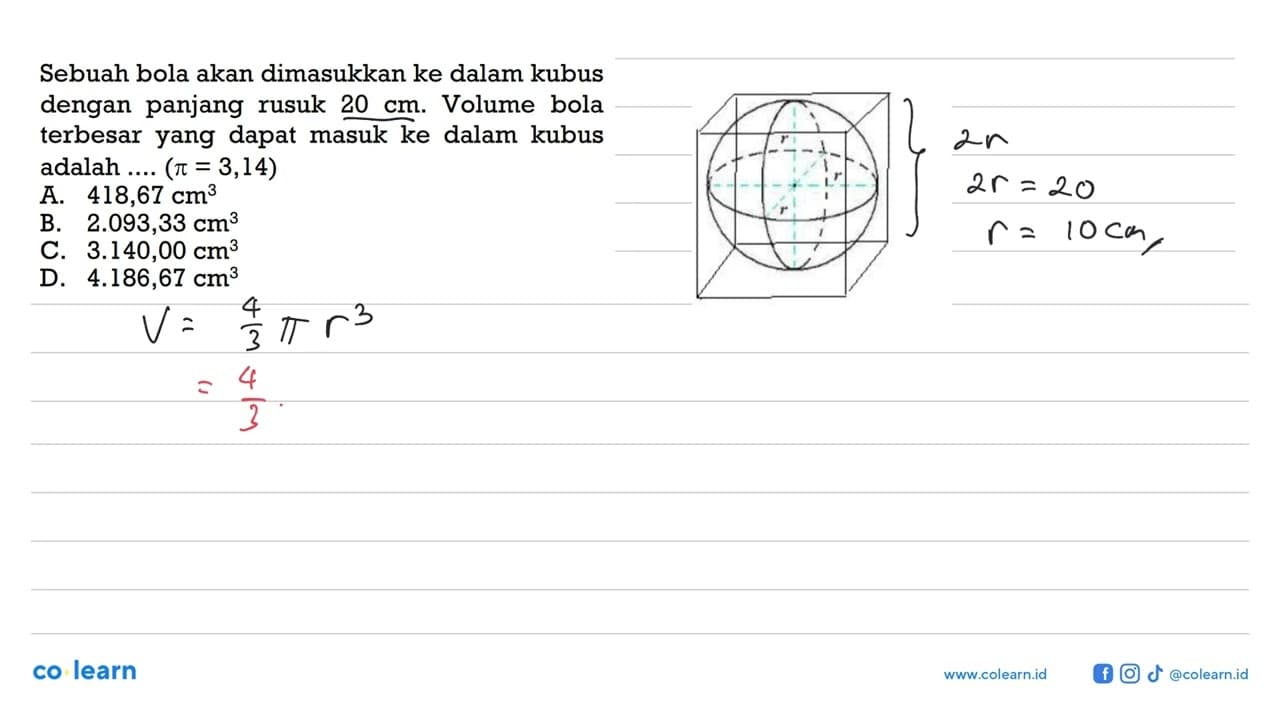 Sebuah bola akan dimasukkan ke dalam kubus
dengan panjang rusuk 20 cm. Volume bola
terbesar yang dapat masuk ke dalam kubus
adalah .... (π = 3,14)
A. 418,67 cm³
B. 2.093,33 cm³
C. 3.140,00 cm³
D. 4.186,67 cm³
r
r
r
2r
2r = 20
r = 10 cm
V = 4/3 π r³
= 4/3 .
co learn
www.colearn.id
@colearn.id